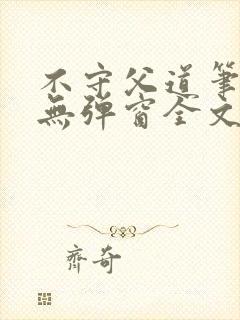 不守父道筆
無彈窗全文
齊奇